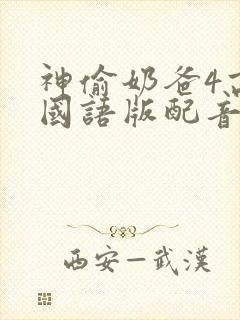 神偷奶爸4高
國語版配音
西安—武漢